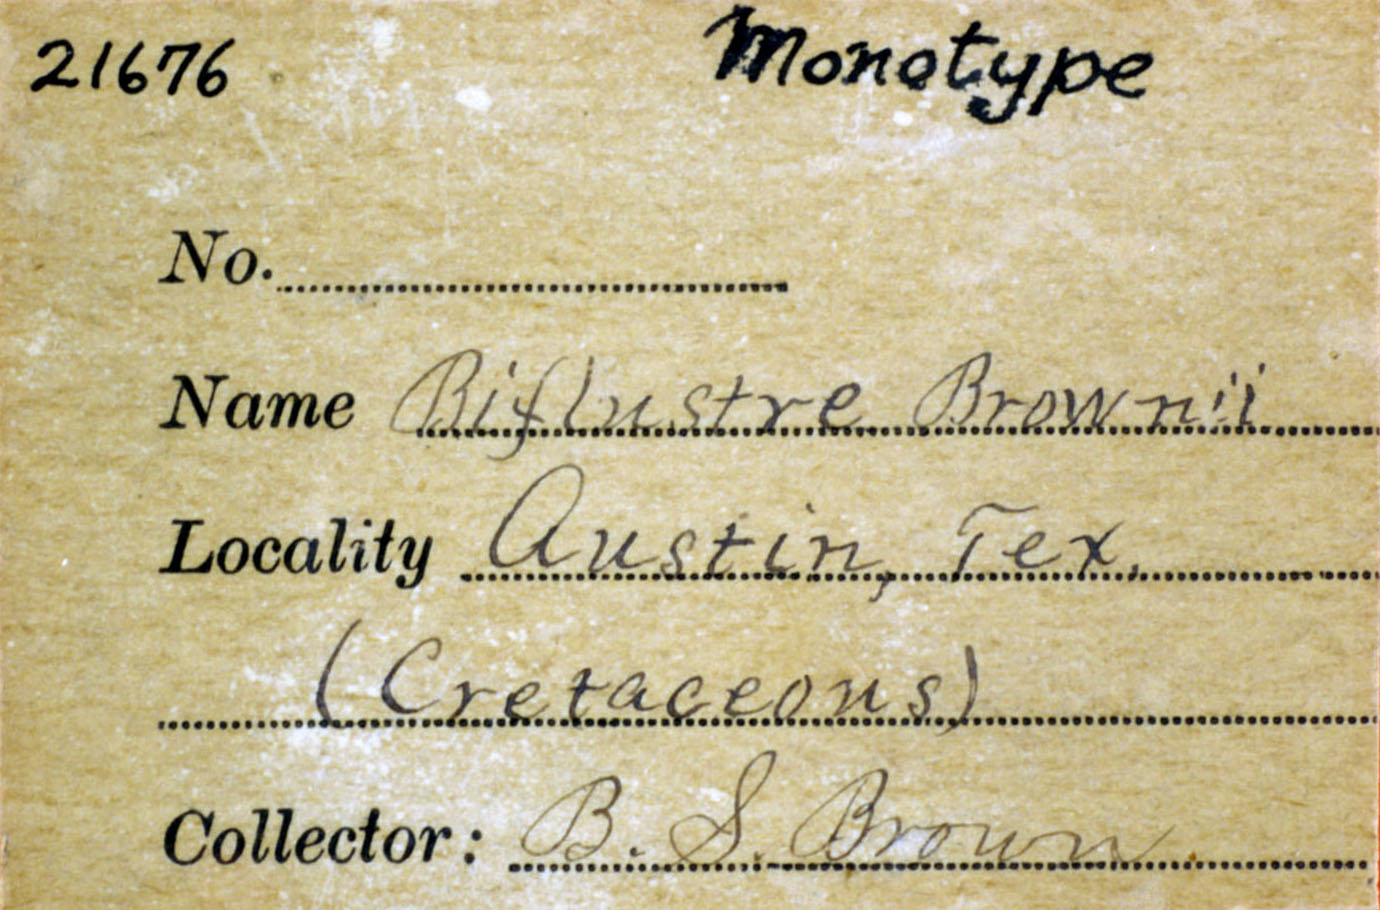 21676 Monotype
No.
Name Biflustre Brownii
Locality Austin, Tex.
(Cretaceous)
Collector: B. S. Brown